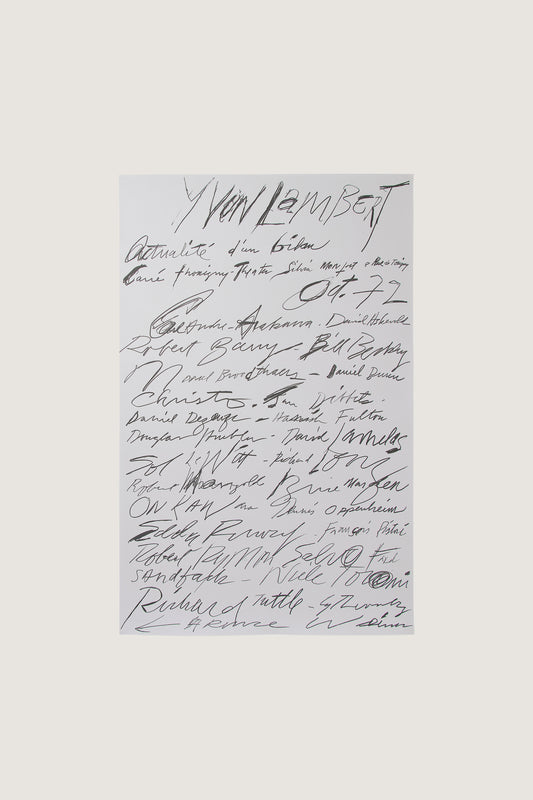 YVON LAMBERT
Actualité d'un bilan
Carré Thorigny - Theatre Silvia Monfort
Oct. 72
Carl Andre - Arakawa - David Askevold
Robert Barry - Bill Beckley
Marcel Broodthaers - Daniel Buren
Christo. Jan Dibbets.
Daniel Dezeuze - Hamish Fulton
Douglas Huebler - David Lamelas
Sol LeWitt - Richard Long
Robert Mangold Brice Marden
ON KAWARA Dennis Oppenheim
Edda Renouf François Ristori
Robert Ryman Salvo Fred
Sandback - Niele Toroni
Richard Tuttle - Cy Twombly
LAWRENCE Weiner